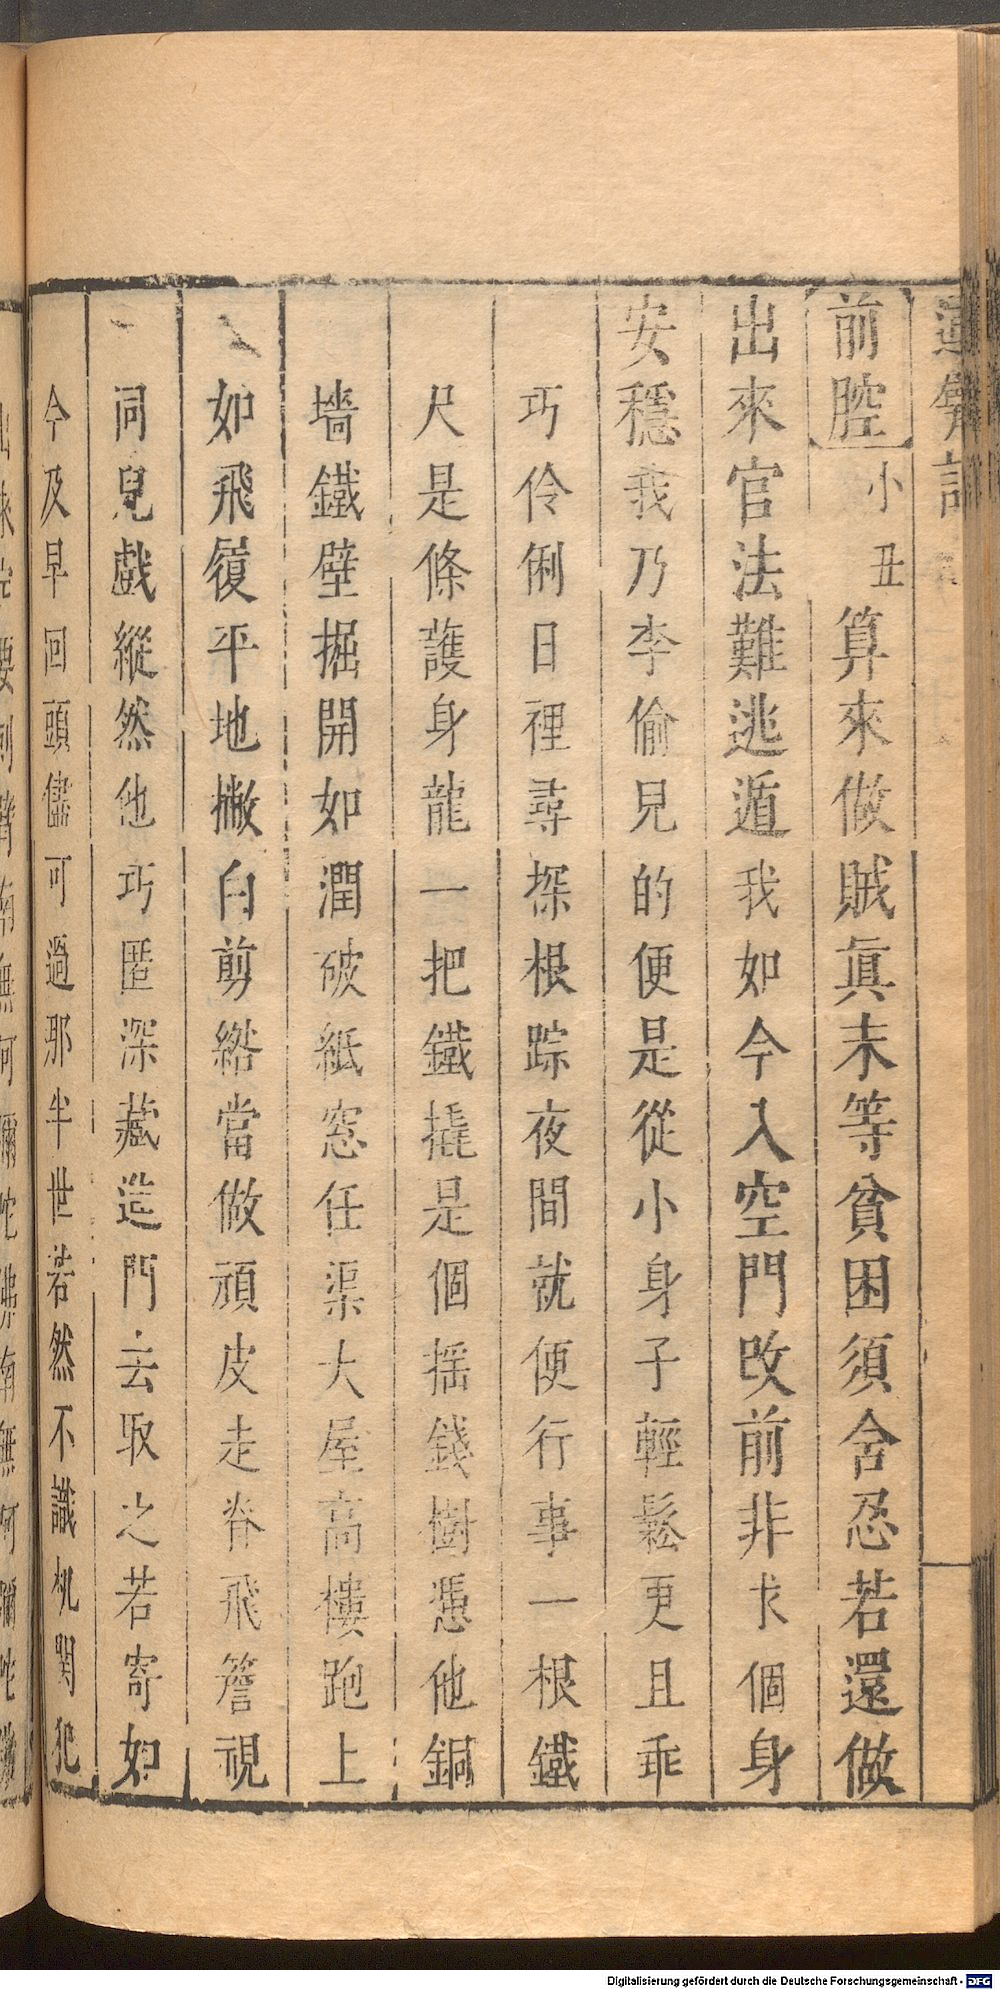 前腔 小丑 算來做賊真未等貧困須舍忍若還做
出來官法難逃遁我如今入空門改前非求個身
安穩 我乃李偷兒的便是從小身子輕鬆更且乖
巧伶俐日裡尋探根踪夜間就便行事一根鐵
尺是條護身龍一把鐵撬是個搖錢樹憑他銅
墻鐵壁掘開如潤破紙窓任渠大屋高樓跑上
如飛履平地撇白剪綹當做頑皮走脊飛簷視
同兒戲縱然他巧匿深藏造門去取之若寄如
今及早回頭儘可過那半世若然不識機関犯
Digitalisierung gefördert durch die Deutsche Forschungsgemeinschaft - DFG